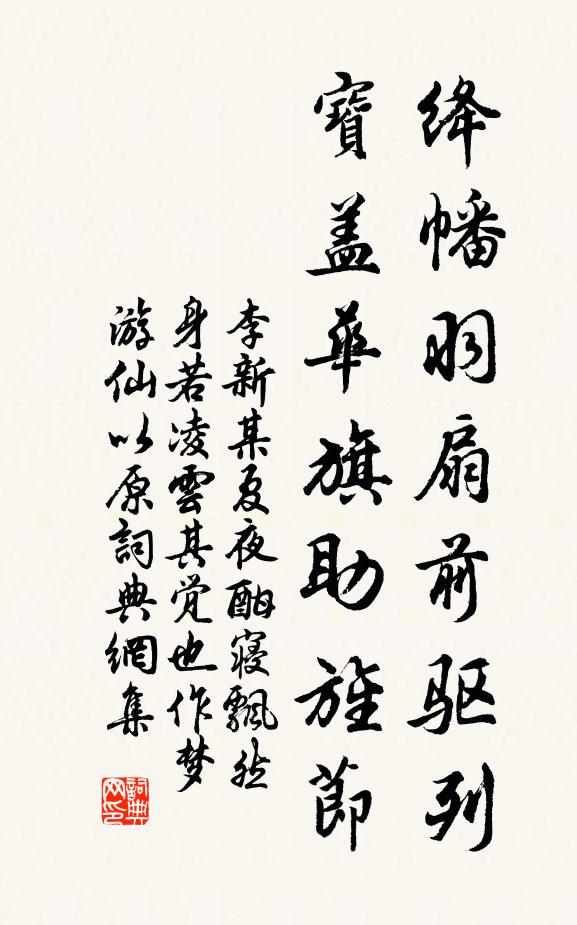 绛幡羽扇前驱列
寳盖華旗助旌節
李新某夏夜酣寝飄然
身若凌雲其觉也作梦
游仙以原詞典網集
詞典网印